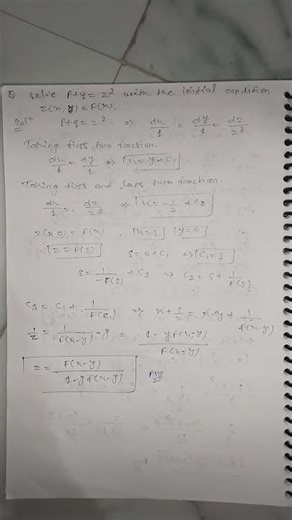 Q solve p+q = z² with the initial condition
z(x, y) = f(x).
Solⁿ p+q = z² ⇒ dx/1 = dy/1 = dz/z²
Taking first two fraction.
dx/1 = dy/1 ⇒ x = y + c₁
Taking first and last two fraction.
dx/1 = dz/z² ⇒ x = -1/z + c₂
z(x, 0) = f(x) , x = s , y = 0
z = f(s) s = 0 + c₁ ⇒ c₁ = s
s = 1/-f(s) + c₂ ⇒ c₂ = s + 1/f(s)
c₂ = c₁ + 1/f(c₁) ⇒ x + 1/z = x - y + 1/f(x-y)
1/z = 1/f(x-y) - y = 1 - y f(x-y) / f(x-y)
z = f(x-y) / 1 - y f(x-y)